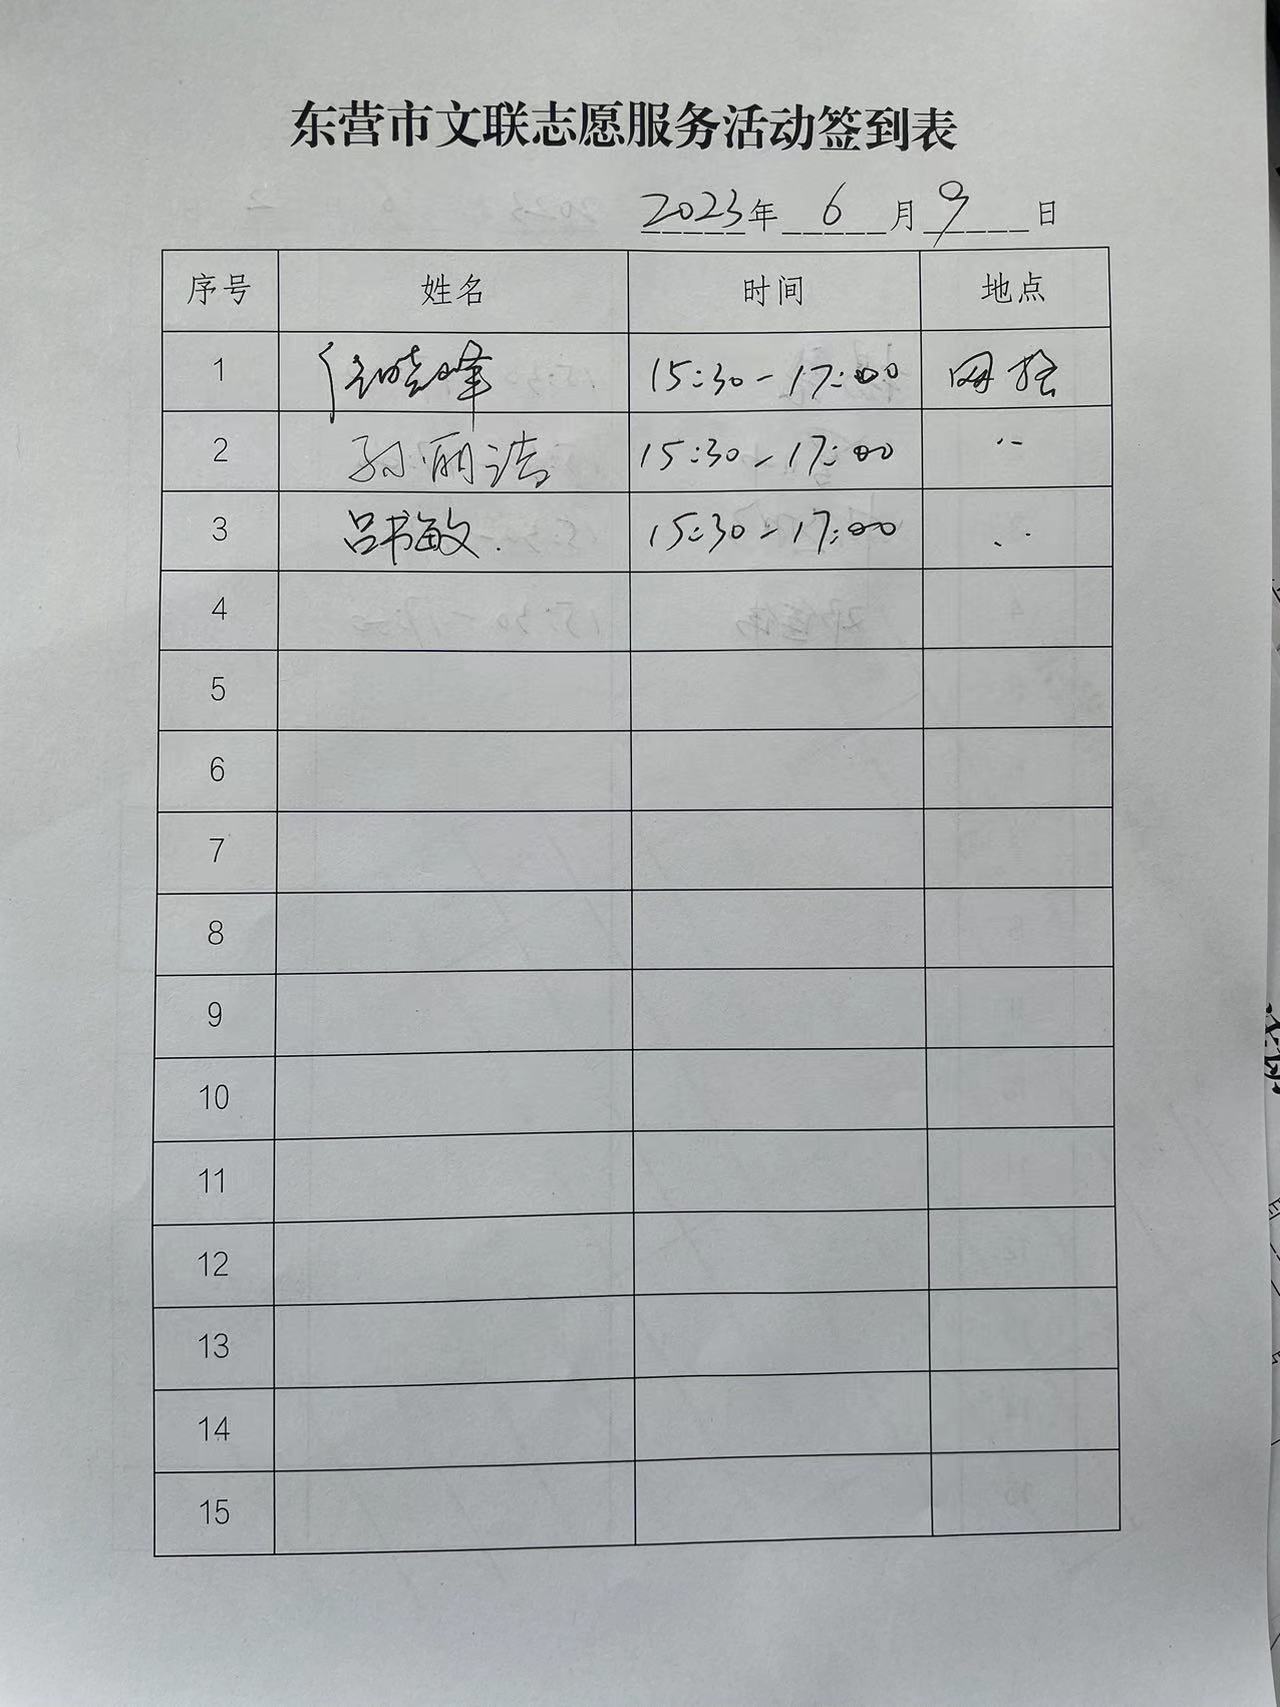 东营市文联志愿服务活动签到表
2023年 6 月 9 日
序号 姓名 时间 地点
1 任晓峰 15:30-17:00
2 孙丽洁 15:30-17:00 〃
3 吕书敏. 15:30-17:00 〃
4
5
6
7
8
9
10
11
12
13
14
15